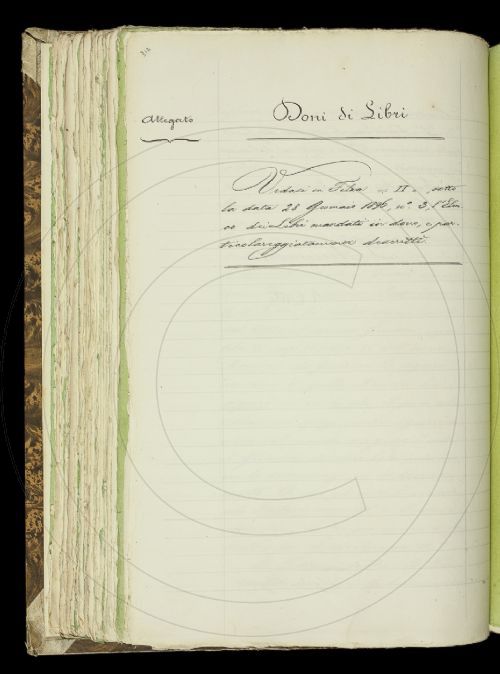 Allegato
Doni di Libri
Vedasi in Filza II sotto
la data 28 Gennaio 1896, n° 3, l'Elen-
co dei Libri mandati in dono, e par-
ticolareggiatamente descritti.